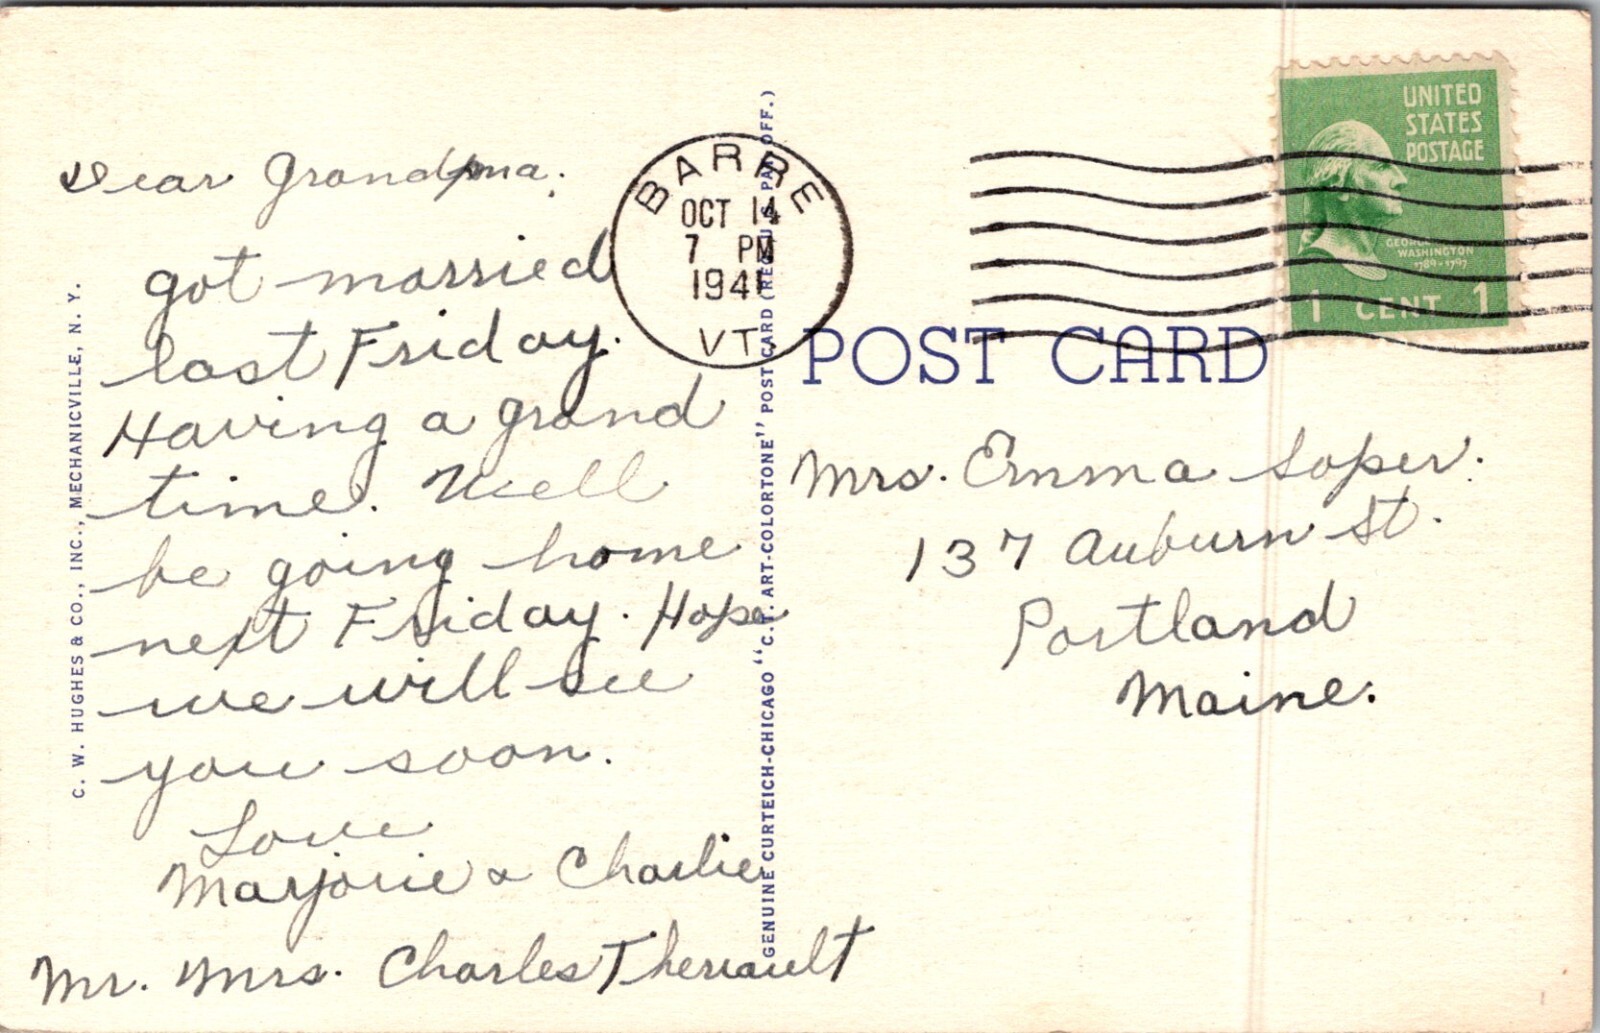 Dear Grandma.
got married
last Friday.
Having a grand
time. Well
be going home
next Friday. Hope
we will see
you soon.
Love
Marjorie & Charlie
Mr. Mrs. Charles Theriault
C. W. HUGHES & CO., INC., MECHANICVILLE, N. Y.
GENUINE CURTEICH-CHICAGO "C.T. ART-COLORTONE" POST CARD (REG. U.S. PAT. OFF.)
BARRE
OCT 14
7 PM
1941
VT.
UNITED
STATES
POSTAGE
GEORGE
WASHINGTON
1789-1797
1 CENT 1
POST CARD
Mrs. Emma Soper.
137 Auburn St.
Portland
Maine.